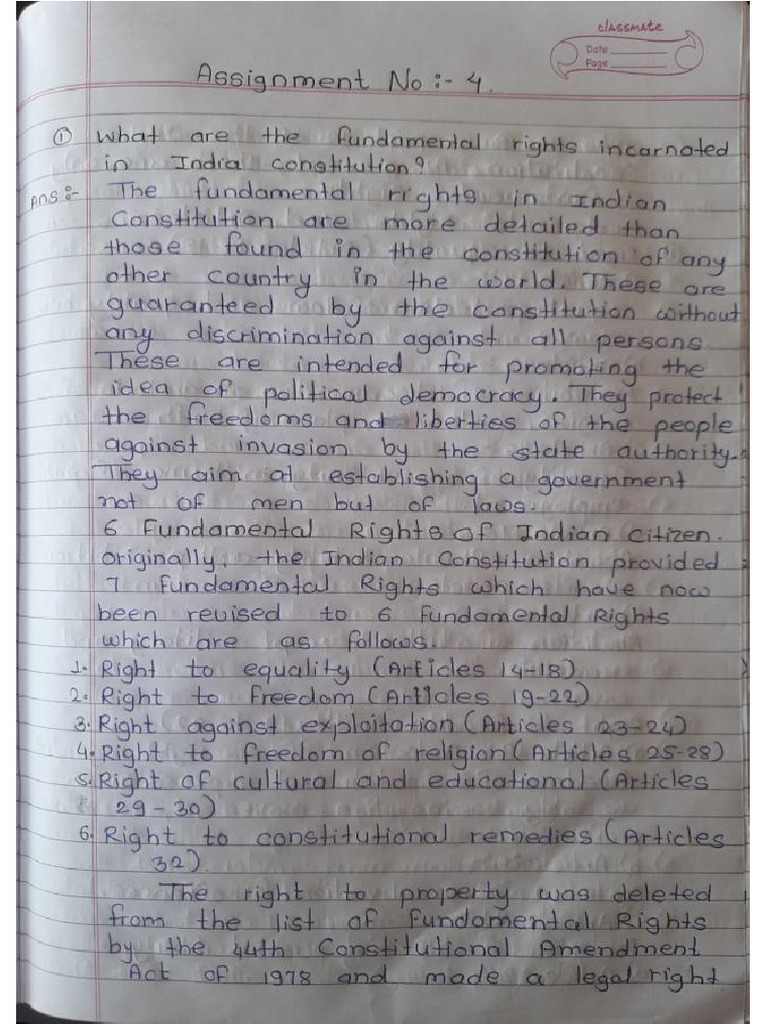 classmate
Date
Page
Assignment No :- 4.
① What are the fundamental rights incarnated
in India constitution?
Ans :- The fundamental rights in Indian
Constitution are more detailed than
those found in the constitution of any
other country in the world. These are
guaranteed by the constitution without
any discrimination against all persons.
These are intended for promoting the
idea of political democracy. They protect
the freedoms and liberties of the people
against invasion by the state authority.
They aim at establishing a government
not of men but of laws.
6 Fundamental Rights of Indian Citizen.
originally, the Indian Constitution provided
7 fundamental Rights which have now
been revised to 6 Fundamental Rights
which are as follows.
1. Right to equality (Articles 14-18)
2. Right to Freedom (Articles 19-22)
3. Right against exploitation (Articles 23-24)
4. Right to freedom of religion (Articles 25-28)
5. Right of cultural and educational (Articles
29-30)
6. Right to constitutional remedies (Articles
32)
The right to property was deleted
from the list of Fundamental Rights
by the 44th Constitutional Amendment
Act of 1978 and made a legal right